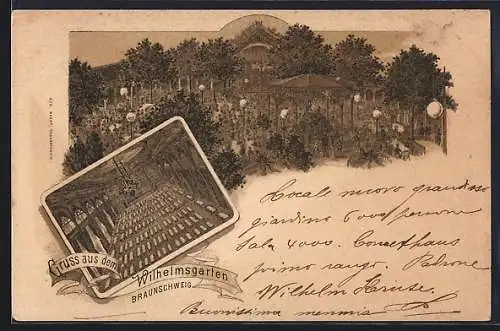 Gruss aus dem
Wilhelmsgarten
BRAUNSCHWEIG
Locale nuovo grandioso
giardino 6000 persone
Sala 4000. Concerthaus
primo rango. Padrone
Wilhelm
Buonissima